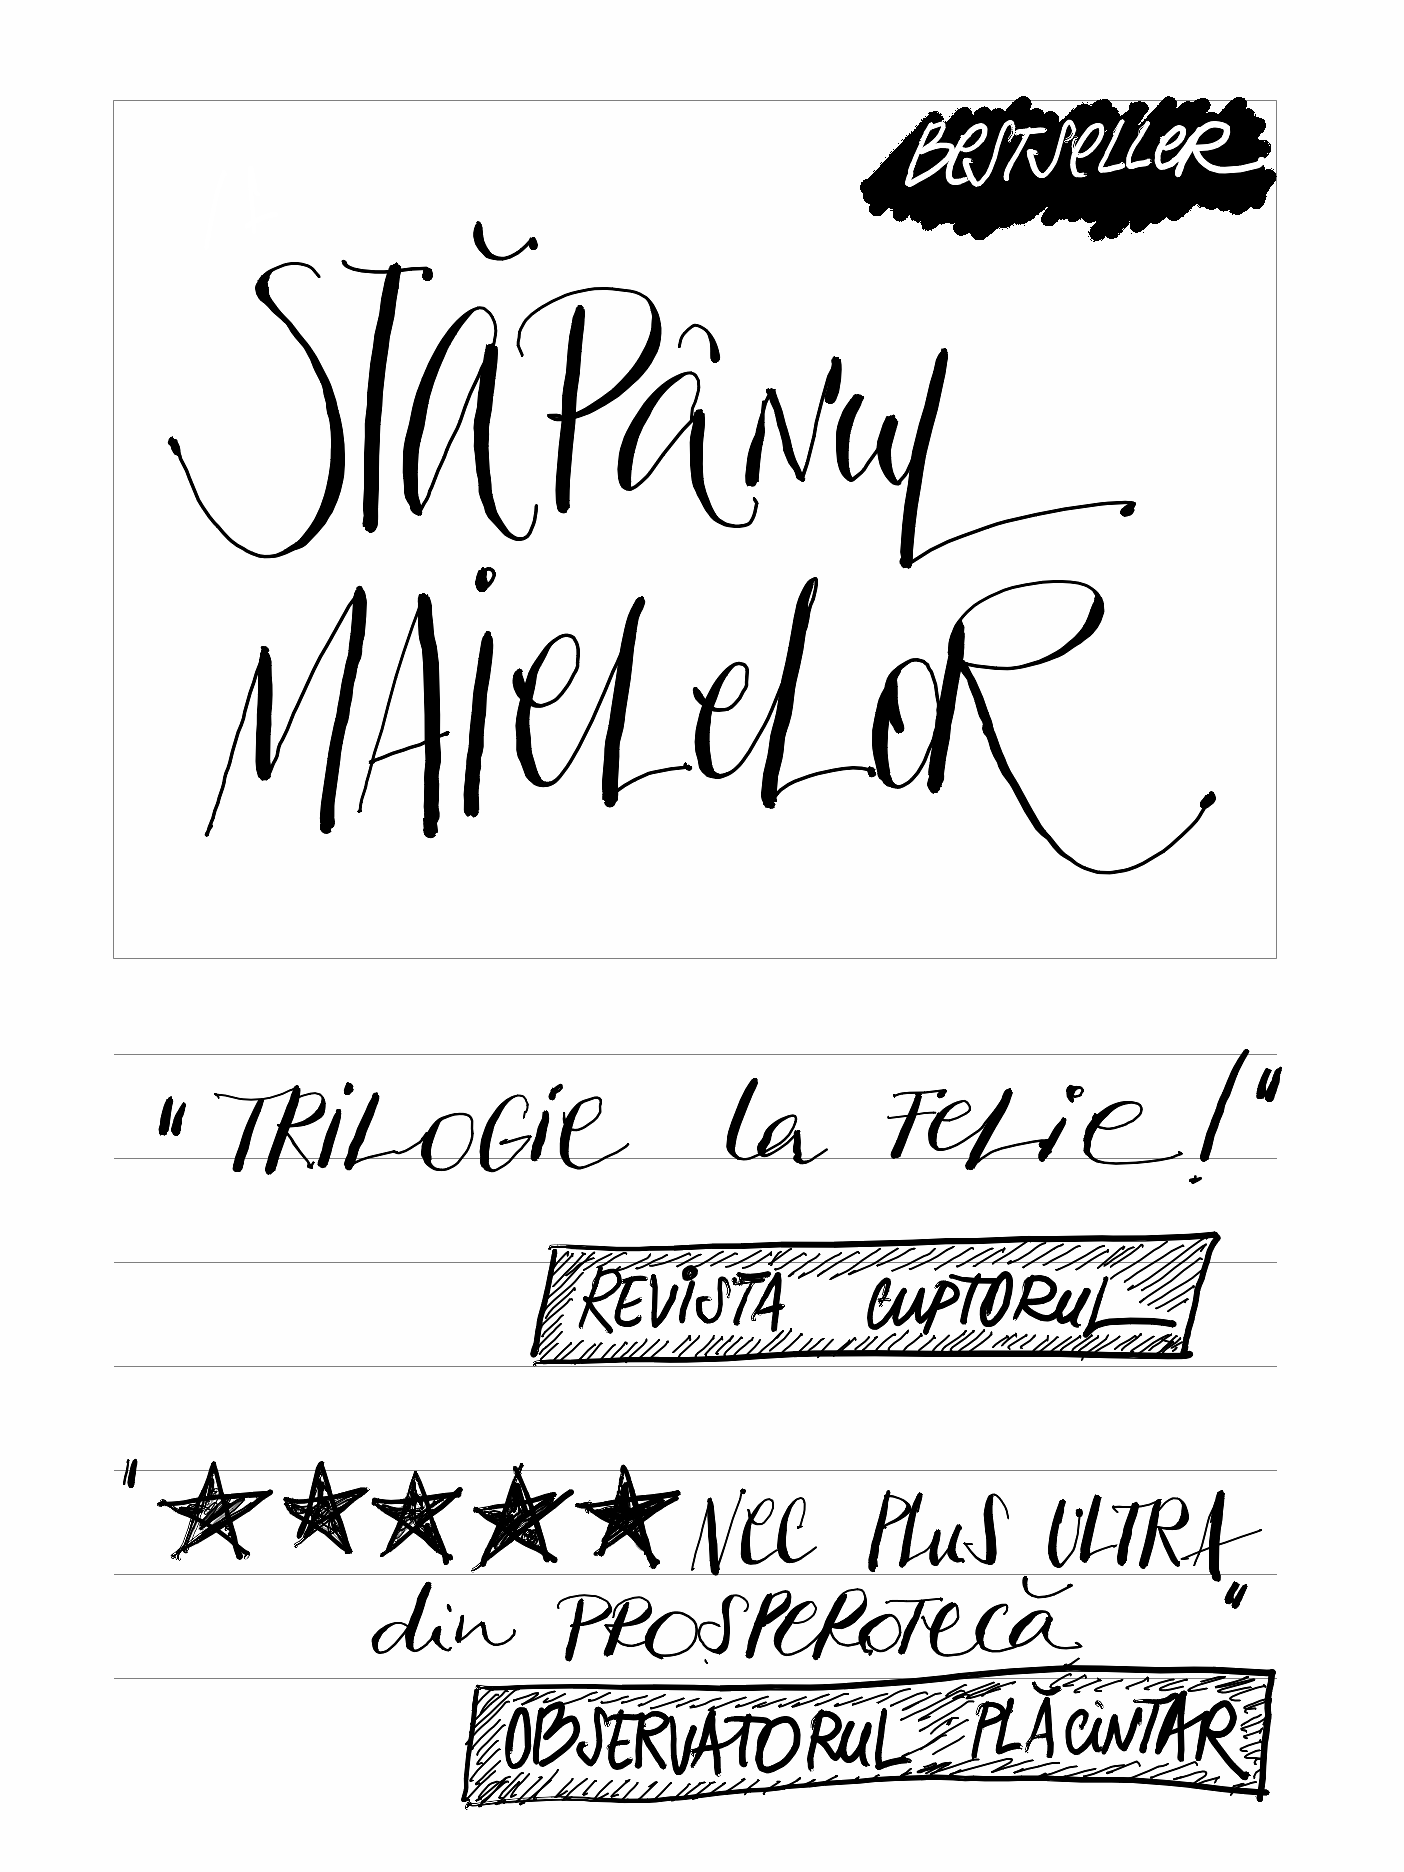 BESTSELLER
STĂPÂNUL
MAIELELOR
"TRILOGIE la FELIE!"
REVISTA CUPTORUL
"★★★★★ NEC PLUS ULTRA
din PROSPEROTECĂ"
OBSERVATORUL PLĂCINTAR